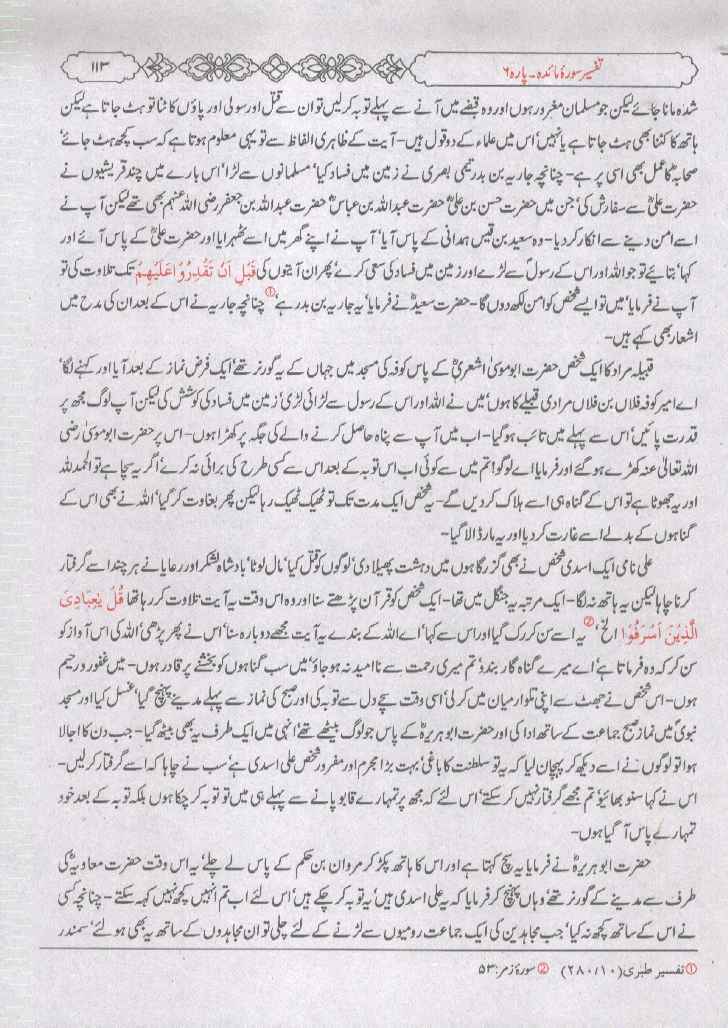 تفسیر سورۂ مائدہ۔ پارہ ۶
۱۱۳
شدہ مانا جائے لیکن جو مسلمان مغرور ہوں اور وہ قبضے میں آنے سے پہلے توبہ کرلیں تو ان سے قتل اور سولی اور پاؤں کاٹنا تو ہٹ جاتا ہے لیکن
ہاتھ کا کٹنا بھی ہٹ جاتا ہے یا نہیں‘ اس میں علماء کے دو قول ہیں- آیت کے ظاہری الفاظ سے تو یہی معلوم ہوتا ہے کہ سب کچھ ہٹ جائے‘
صحابہؓ کا عمل بھی اسی پر ہے- چنانچہ جاریہ بن بدر تیمی بصری نے زمین میں فساد کیا‘ مسلمانوں سے لڑا‘ اس بارے میں چند قریشیوں نے
حضرت علیؓ سے سفارش کی‘ جن میں حضرت حسن بن علیؓ‘ حضرت عبداللہ بن عباسؓ‘ حضرت عبداللہ بن جعفر رضی اللہ عنہم بھی تھے لیکن آپ نے
اسے امن دینے سے انکار کر دیا- وہ سعید بن قیس ہمدانی کے پاس آیا‘ آپ نے اپنے گھر میں اسے ٹھہرایا اور حضرت علیؓ کے پاس آئے اور
کہا‘ بتائیے تو جو اللہ اور اس کے رسولؐ سے لڑے اور زمین میں فساد کی سعی کرے‘ پھر ان آیتوں کی قَبْلِ اَنْ تَقْدِرُوْا عَلَیْهِمْ تک تلاوت کی تو
آپ نے فرمایا‘ میں تو ایسے شخص کو امن لکھ دوں گا- حضرت سعیدؓ نے فرمایا‘ یہ جاریہ بن بدر ہے‘① چنانچہ جاریہ نے اس کے بعد ان کی مدح میں
اشعار بھی کہے ہیں-
قبیلہ مراد کا ایک شخص حضرت ابو موسیٰ اشعریؓ کے پاس کوفہ کی مسجد میں جہاں کے یہ گورنر تھے‘ ایک فرض نماز کے بعد آیا اور کہنے لگا‘
اے امیر کوفہ فلاں بن فلاں مرادی قبیلے کا ہوں‘ میں نے اللہ اور اس کے رسول سے لڑائی لڑی‘ زمین میں فساد کی کوشش کی لیکن آپ لوگ مجھ پر
قدرت پائیں‘ اس سے پہلے میں تائب ہوگیا- اب میں آپ سے پناہ حاصل کرنے والے کی جگہ پر کھڑا ہوں- اس پر حضرت ابو موسیٰ رضی
اللہ تعالیٰ عنہ کھڑے ہوگئے اور فرمایا اے لوگو! تم میں سے کوئی اب اس توبہ کے بعد اس سے کسی طرح کی برائی نہ کرے‘ اگر یہ سچا ہے تو الحمدللہ
اور یہ جھوٹا ہے تو اس کے گناہ ہی اسے ہلاک کر دیں گے- یہ شخص ایک مدت تک تو ٹھیک ٹھیک رہا لیکن پھر بغاوت کر گیا‘ اللہ نے بھی اس کے
گناہوں کے بدلے اسے غارت کر دیا اور یہ مار ڈالا گیا-
علی نامی ایک اسدی شخص نے بھی گزرگاہوں میں دہشت پھیلا دی‘ لوگوں کو قتل کیا‘ مال لوٹا‘ بادشاہ لشکر اور رعایا نے ہر چند اسے گرفتار
کرنا چاہا لیکن یہ ہاتھ نہ لگا- ایک مرتبہ یہ جنگل میں تھا- ایک شخص کو قرآن پڑھتے سنا اور وہ اس وقت یہ آیت تلاوت کر رہا تھا قُلْ یٰعِبَادِیَ
الَّذِیْنَ اَسْرَفُوْا الخ‘② یہ اسے سن کر رک گیا اور اس سے کہا‘ اے اللہ کے بندے یہ آیت مجھے دوبارہ سنا‘ اس نے پھر پڑھی‘ اللہ کی اس آواز کو
سن کر کہ وہ فرماتا ہے‘ اے میرے گناہ گار بندو‘ تم میری رحمت سے ناامید نہ ہو جاؤ‘ میں سب گناہوں کو بخشنے پر قادر ہوں- میں غفور و رحیم
ہوں- اس شخص نے جھٹ سے اپنی تلوار میان میں کر لی‘ اسی وقت سچے دل سے توبہ کی اور صبح کی نماز سے پہلے مدینے پہنچ گیا‘ غسل کیا اور مسجد
نبویؐ میں نماز صبح جماعت کے ساتھ ادا کی اور حضرت ابو ہریرہؓ کے پاس جو لوگ بیٹھے تھے‘ انہی میں ایک طرف یہ بھی بیٹھ گیا- جب دن کا اجالا
ہوا تو لوگوں نے اسے دیکھ کر پہچان لیا کہ یہ تو سلطنت کا باغی‘ بہت بڑا مجرم اور مفرور شخص علی اسدی ہے‘ سب نے چاہا کہ اسے گرفتار کر لیں-
اس نے کہا سنو بھائیو‘ تم مجھے گرفتار نہیں کر سکتے‘ اس لئے کہ مجھ پر تمہارے قابو پانے سے پہلے ہی میں تو توبہ کر چکا ہوں بلکہ توبہ کے بعد خود
تمہارے پاس آ گیا ہوں-
حضرت ابو ہریرہؓ نے فرمایا یہ سچ کہتا ہے اور اس کا ہاتھ پکڑ کر مروان بن حکم کے پاس لے چلے‘ یہ اس وقت حضرت معاویہؓ کی
طرف سے مدینے کے گورنر تھے‘ وہاں پہنچ کر فرمایا کہ یہ علی اسدی ہیں‘ یہ توبہ کر چکے ہیں‘ اس لئے اب تم انہیں کچھ نہیں کہہ سکتے- چنانچہ کسی
نے اس کے ساتھ کچھ نہ کیا‘ جب مجاہدین کی ایک جماعت رومیوں سے لڑنے کے لئے چلی تو ان مجاہدوں کے ساتھ یہ بھی ہو لئے‘ سمندر
① تفسیر طبری (۲۸۰/۱۰) ② سورۂ زمر: ۵۳